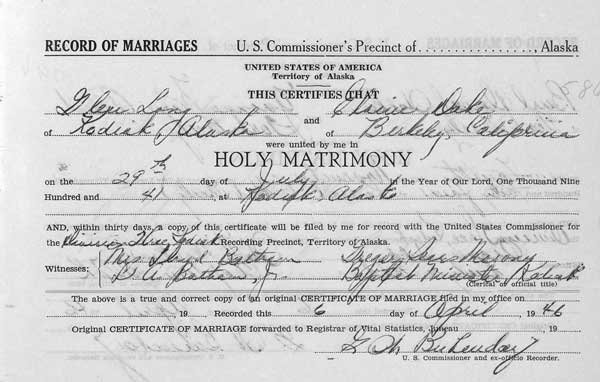 RECORD OF MARRIAGES U. S. Commissioner's Precinct of ................, Alaska
UNITED STATES OF AMERICA
Territory of Alaska
THIS CERTIFIES THAT
Glen Long and
of Kodiak, Alaska and of Berkeley, California
were united by me in
HOLY MATRIMONY
on the 29th day of July in the Year of Our Lord, One Thousand Nine
Hundred and 41, at Kodiak Alaska
AND, within thirty days, a copy of this certificate will be filed by me for record with the United States Commissioner for
the Division Three, Kodiak Recording Precinct, Territory of Alaska.
Witnesses: Mrs.
Baptist Minister, Kodiak
(Clerical or official title)
The above is a true and correct copy of an original CERTIFICATE OF MARRIAGE filed in my office on
19 Recorded this 6 day of April, 1946
Original CERTIFICATE OF MARRIAGE forwarded to Registrar of Vital Statistics, Juneau 19
U. S. Commissioner and ex-officio Recorder.